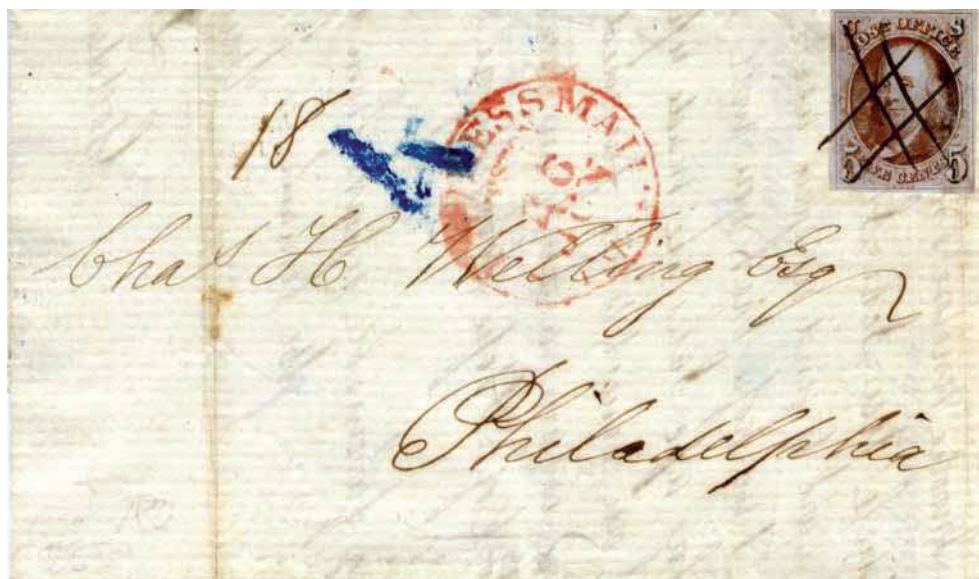 POST OFFICE
FIVE CENTS
5 5
ESS MAIL
18
Chas H. Welling Esq
Philadelphia